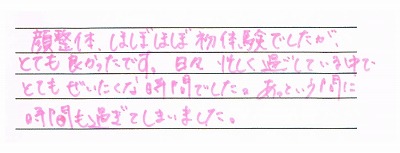 顔整体、ほぼほぼ初体験でしたが、
とても良かったです。日々忙しく過ごしている中で
とてもぜいたくな時間でした。あっという間に
時間も過ぎてしまいました。